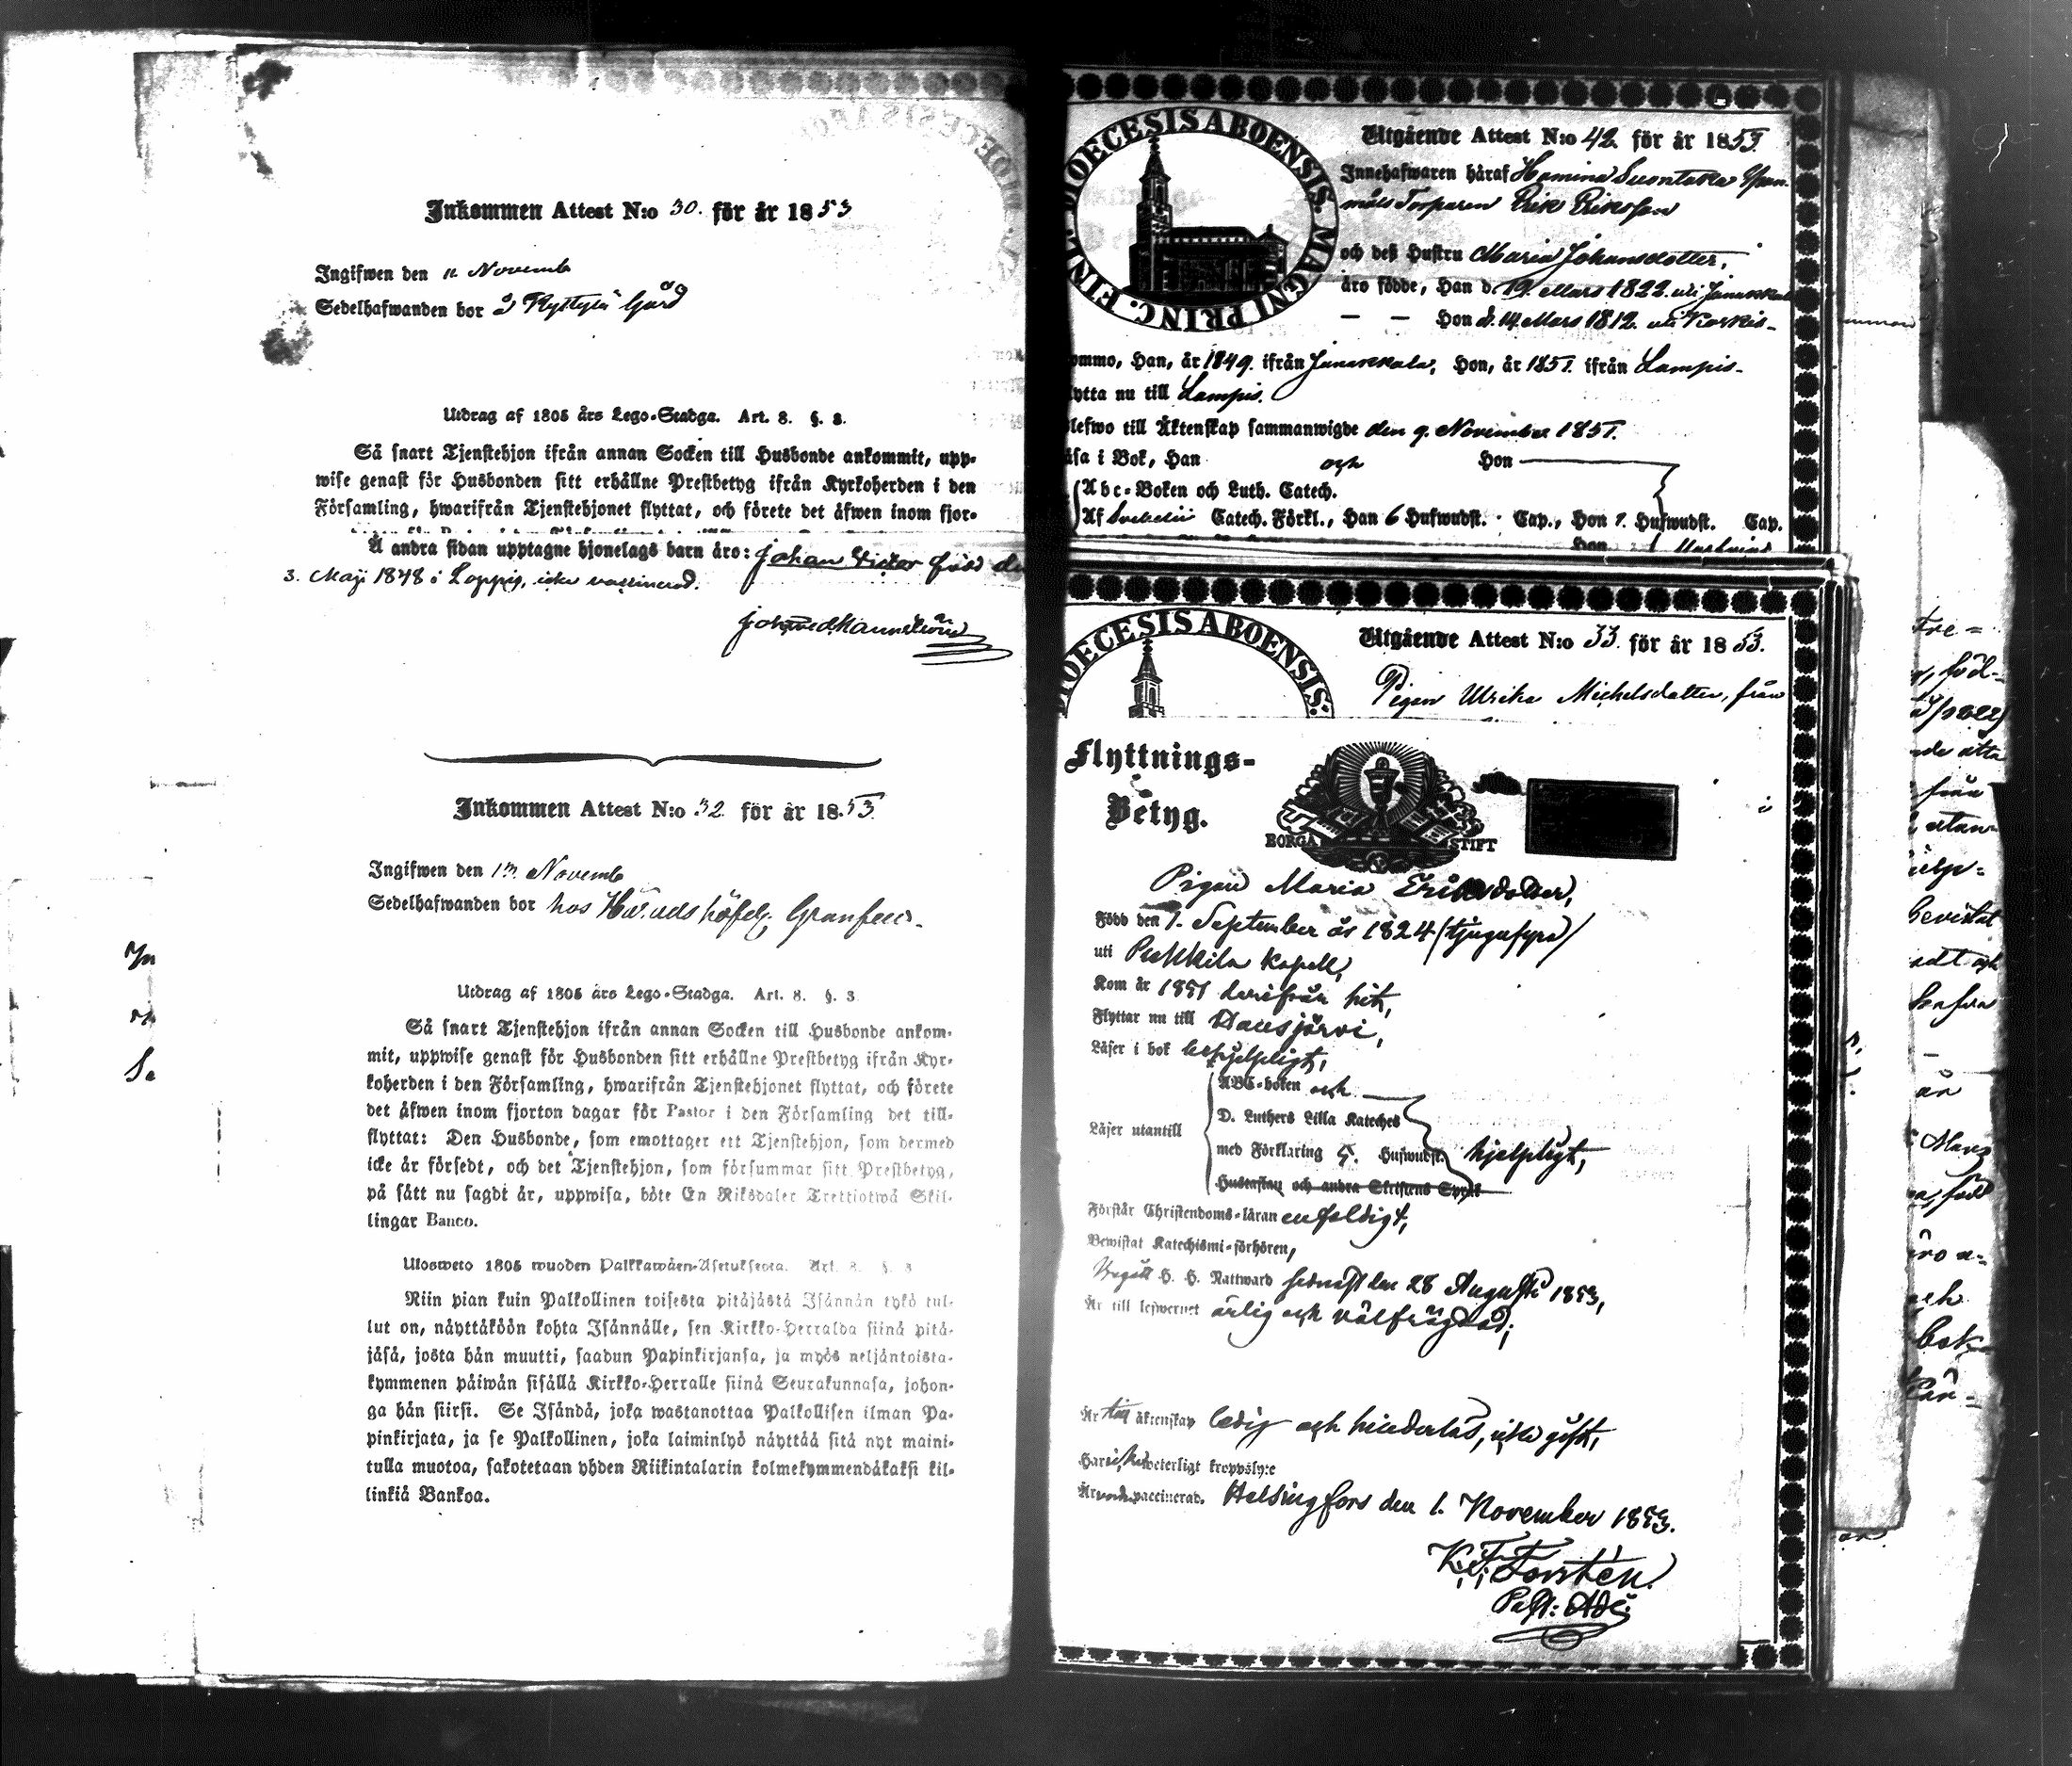 Inkommen Attest N:o 30. för år 1853
Ingifwen den 11 Novemb
Sedelhafwanden bor å Ryttylä Gård
Utdrag af 1805 års Lego-Stadga. Art. 8. §. 3.
Så snart Tjenstehjon ifrån annan Socken till Husbonde ankommit, upp-
wise genast för Husbonden sitt erhållne Prestbetyg ifrån Kyrkoherden i den
Församling, hwarifrån Tjenstehjonet flyttat, och förete det äfwen inom fjor-
Å andra sidan upptagne hjonelags barn äro: Johan Victor född den
3. Maji 1848 i Loppis, icke vaccinerad.
Inkommen Attest N:o 32. för år 1853.
Ingifwen den 13. Novemb
Sedelhafwanden bor hos Häradshöfd.
Utdrag af 1805 års Lego-Stadga. Art. 8. §. 3.
Så snart Tjenstehjon ifrån annan Socken till Husbonde ankom-
mit, uppwise genast för Husbonden sitt erhållne Prestbetyg ifrån Kyr-
koherden i den Församling, hwarifrån Tjenstehjonet flyttat, och förete
det äfwen inom fjorton dagar för Pastor i den Församling det till-
flyttat: Den Husbonde, som emottager ett Tjenstehjon, som dermed
icke är försedt, och det Tjenstehjon, som försummar sitt Prestbetyg,
på sätt nu sagdt är, uppwisa, böte En Riksdaler Trettiotwå Skil-
lingar Banco.
Ulosweto 1805 wuoden Palkkawäen-Asetuksesta. Art. 8. §. 3
Niin pian kuin Palkollinen toisesta pitäjästä Isännän tykö tul-
lut on, näyttäköön kohta Isännälle, sen Kirkko-Herralda siinä pitä-
jäsä, josta hän muutti, saadun Papinkirjansa, ja myös neljäntoista-
kymmenen päiwän sisällä Kirkko-Herralle siinä Seurakunnasa, johon-
ga hän siirsi. Se Isändä, joka wastanottaa Palkollisen ilman Pa-
pinkirjata, ja se Palkollinen, joka laiminlyö näyttää sitä nyt maini-
tulla muotoa, sakotetaan yhden Riikintalarin kolmekymmendäkaksi kil-
linkiä Bankoa.
DIOECESIS ABOENSIS. MAGNI PRINC. FINL.
Utgående Attest N:o 42. för år 1853.
Innehafwaren häraf Hamina Suontaka
måls Torparen Erik Eriksson
och deß Hustru Maria Johansdotter,
äro födde, Han d. 19. Mars 1822. uti Janakkala
— — Hon d. 14. Mars 1812. uti Koskis-
ommo, Han, år 1849. ifrån Janakkala, Hon, år 1851. ifrån Lampis-
lytta nu till Lampis.
lefwo till Äktenskap sammanwigde den 9. November 1851.
äsa i Bok, Han och Hon
Abc-Boken och Luth. Catech.
Af Svebelii Catech. Förkl., Han 6 Hufwudst. Cap., Hon 1. Hufwudst. Cap.
DIOECESIS ABOENSIS.
Utgående Attest N:o 33. för år 1853.
Pigan Ulrika Michelsdotter, från
Flyttnings-
Betyg.
BORGÅ STIFT
Pigan Maria Eriksdotter,
Född den 1. September år 1824 /tjugufyra/
uti Pukkila kapell,
Kom år 1851 derifrån hit,
Flyttar nu till Hausjärvi,
Läser i bok behjelpligt,
ABC-boken och
D. Luthers Lilla Kateches
Läser utantill
med Förklaring 5. Hufwudst. hjelpligt,
Hustaflan och andra Skriftens Språk
Förstår Christendoms-läran enfaldigt,
Bewistat Katechismi-förhören,
Begått H. H. Nattward sednast den 28 Augusti 1853,
Är till lefwernet ärlig och välfrägdad,
Är till äktenskap ledig och hinderlös, icke gift,
Har icke weterligt kroppslyte
Är vaccinerad. Helsingfors den 1. November 1853.
K. F. Forstén.
Past: Adj: